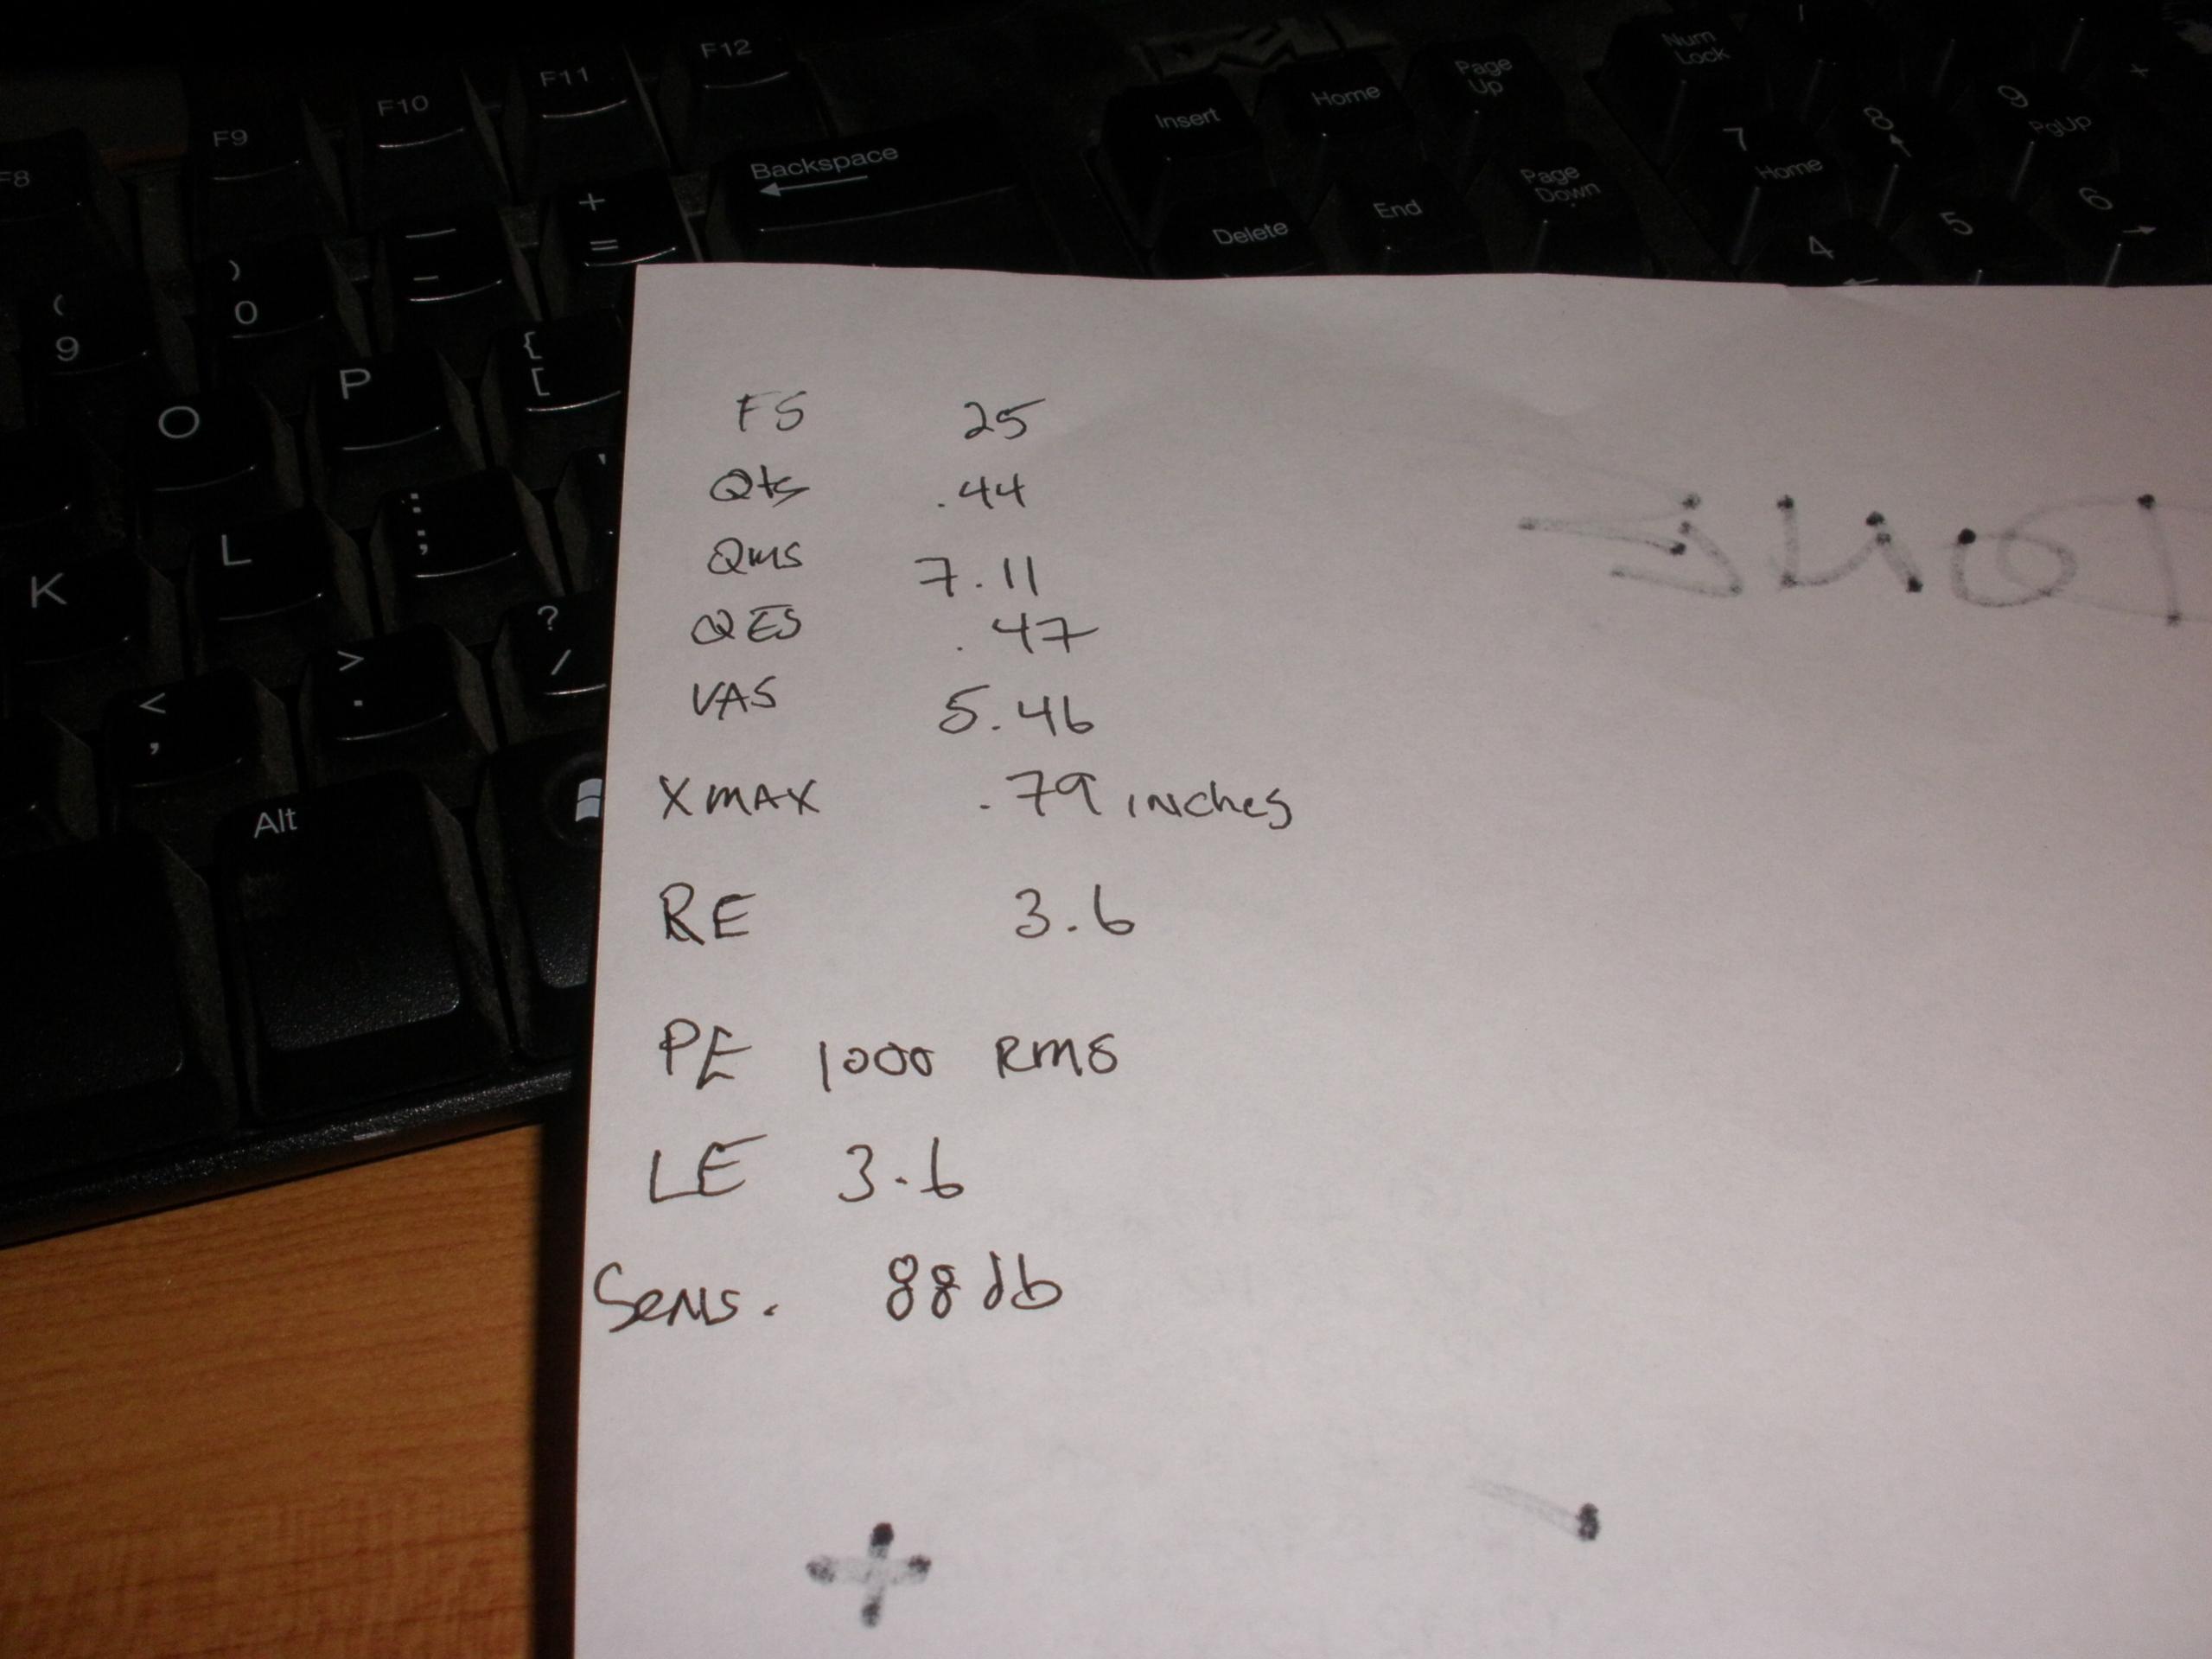 F8 F9 F10 F11 F12
Backspace
Insert Home Page Up
Delete End Page Down
Num Lock
7 Home 8 9 PgUp +
4 5 6
( 9 ) 0 — - + =
O P { [
K L : ; '
< , > . ? /
Alt
DELL
FS 25
Qts .44
Qms 7.11
QES .47
VAS 5.46
XMAX .79 inches
RE 3.6
PE 1000 RMS
LE 3.6
Sens. 88db